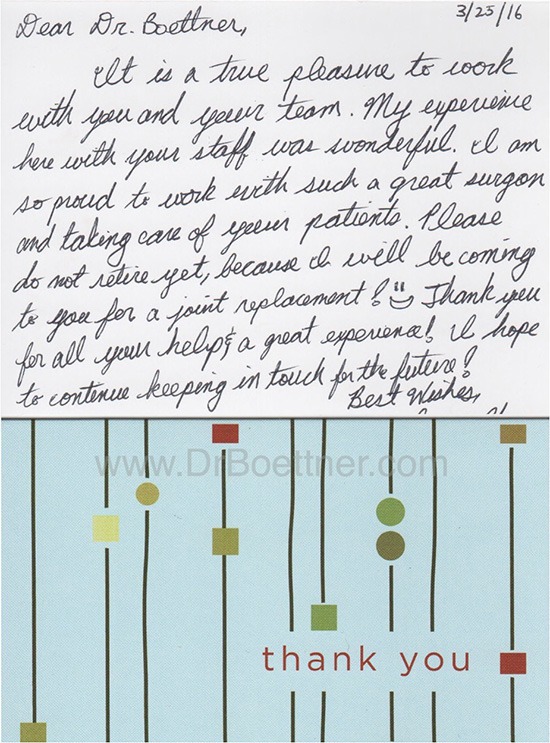 3/25/16
Dear Dr. Boettner,
It is a true pleasure to work
with you and your team. My experience
here with your staff was wonderful. I am
so proud to work with such a great surgon
and taking care of your patients. Please
do not retire yet, because I will be coming
to you for a joint replacement! Thank you
for all your help & a great experience! I hope
to continue keeping in touch for the future!
Best Wishes,
www.DrBoettner.com
thank you